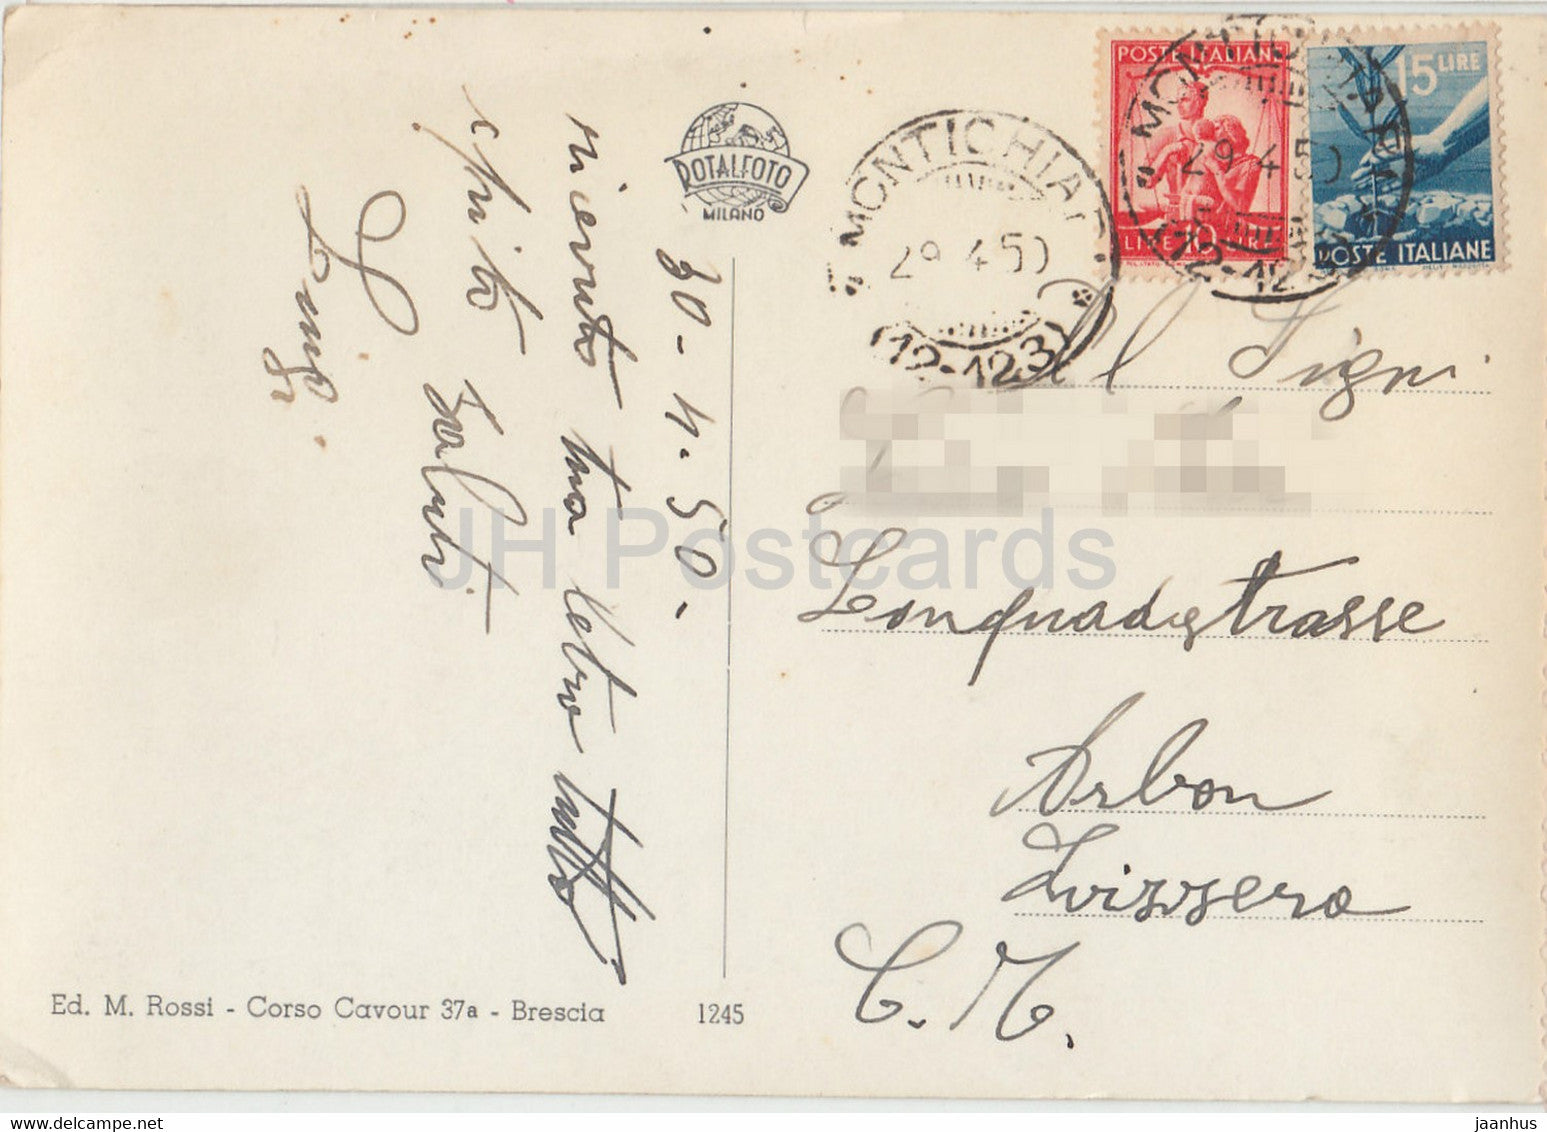 30-4.50-
ricevuto tua
tutto
saluti
Luigi
ROTALFOTO
MILANO
Ed. M. Rossi - Corso Cavour 37a - Brescia
1245
MONTICHIARI
29.4.50
(12-123)
POSTE ITALIANE
LIRE 10 LIRE
MONTICHIARI
29.4.50
(12-123)
15 LIRE
POSTE ITALIANE
Signi
Arbon
Svizzera
JH Postcards
delcampe.net
jaanhus